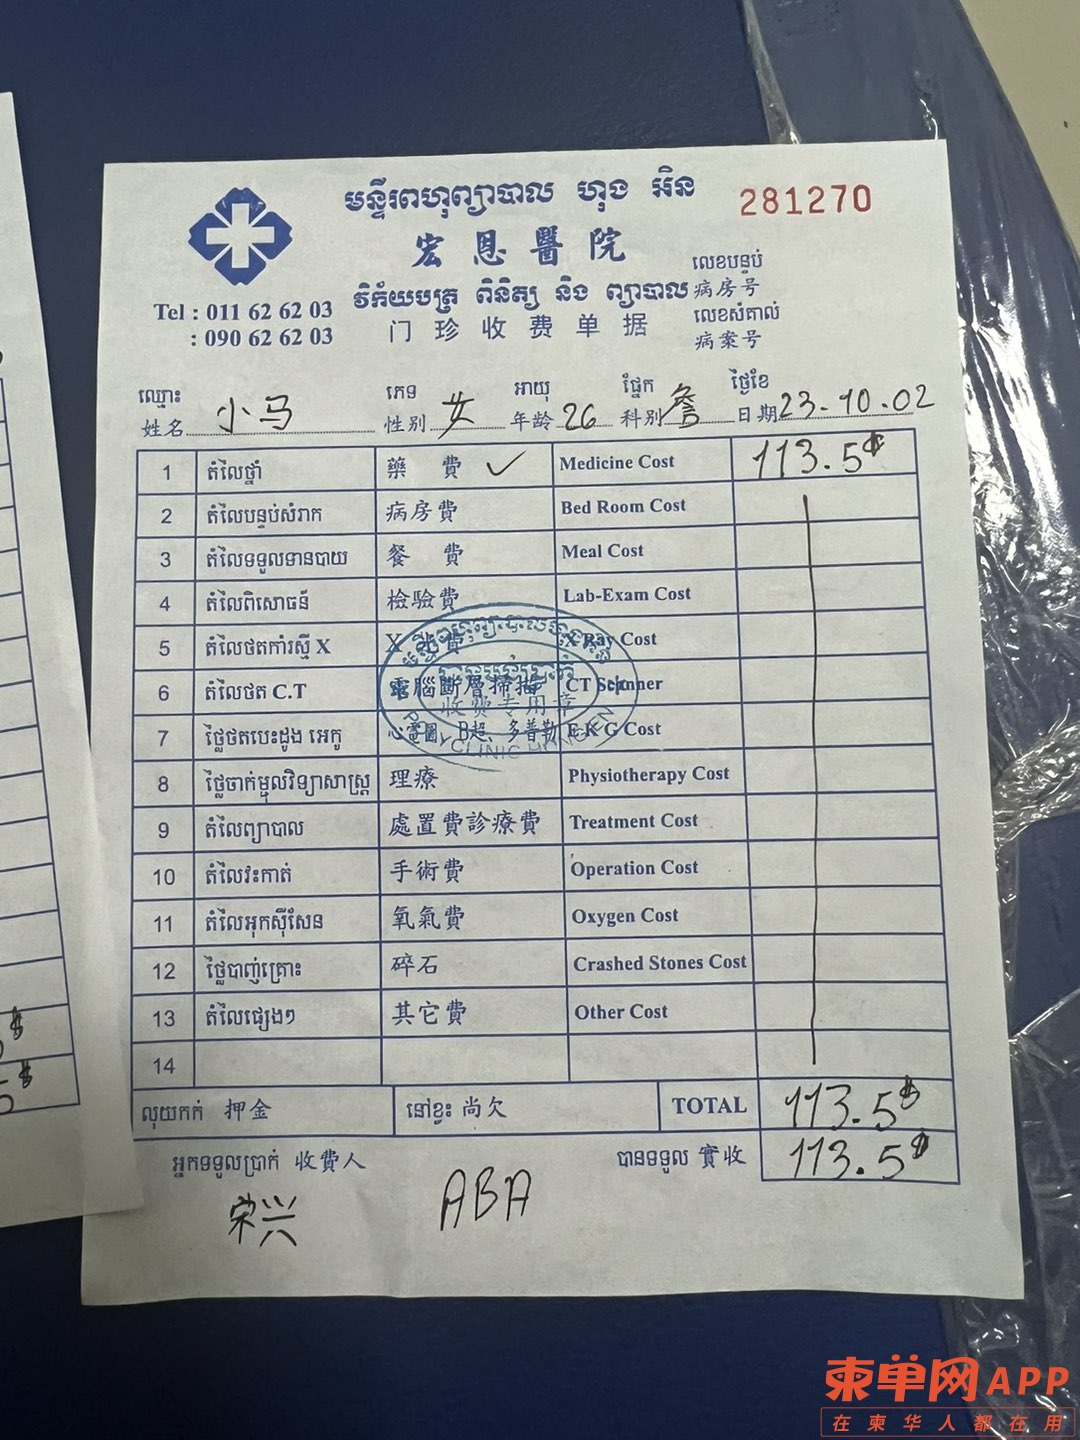 មន្ទីរពហុព្យាបាល ហុង អិន
281270
宏恩醫院
Tel : 011 62 62 03
: 090 62 62 03
វិក័យបត្រ ពិនិត្យ និង ព្យាបាល
门珍收费单据
លេខបន្ទប់
病房号
លេខសំគាល់
病案号
ឈ្មោះ ភេទ អាយុ ផ្នែក ថ្ងៃខែ
姓名 小马 性别 女 年龄 26 科别 詹 日期 23.10.02
1 តំលៃថ្នាំ 藥費 ✓ Medicine Cost 113.5$
2 តំលៃបន្ទប់សំរាក 病房費 Bed Room Cost
3 តំលៃទទួលទានបាយ 餐費 Meal Cost
4 តំលៃពិសោធន៍ 檢驗費 Lab-Exam Cost
5 តំលៃថតកាំរស្មី X X 光費 X Ray Cost
6 តំលៃថត C.T 電腦斷層掃描 CT Scanner
7 ថ្លៃថតបេះដូង អេកូ 心電圖、B超、多普勒 E K G Cost
8 ថ្លៃចាក់ម្ជុលវិទ្យាសាស្ត្រ 理療 Physiotherapy Cost
9 តំលៃព្យាបាល 處置費診療費 Treatment Cost
10 តំលៃវះកាត់ 手術費 Operation Cost
11 តំលៃអុកស៊ីសែន 氧氣費 Oxygen Cost
12 ថ្លៃបាញ់គ្រោះ 碎石 Crashed Stones Cost
13 តំលៃផ្សេងៗ 其它費 Other Cost
14
收费专用章
POLYCLINIC HONG EN
លុយកក់ 押金 នៅខ្វះ 尚欠 TOTAL 113.5$
អ្នកទទួលប្រាក់ 收費人 បានទទួល 實收 113.5$
荣兴 ABA
柬单网APP
在柬华人都在用